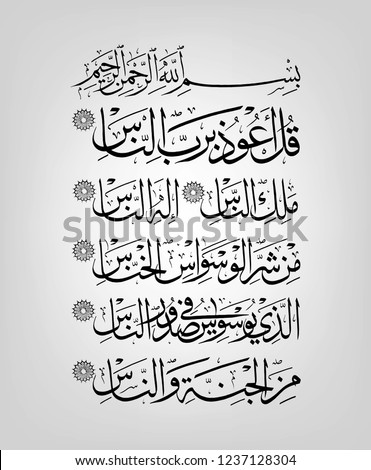 بِسْمِ اللَّهِ الرَّحْمَنِ الرَّحِيمِ
قُلْ أَعُوذُ بِرَبِّ النَّاسِ
مَلِكِ النَّاسِ إِلَهِ النَّاسِ
مِنْ شَرِّ الْوَسْوَاسِ الْخَنَّاسِ
الَّذِي يُوَسْوِسُ فِي صُدُورِ النَّاسِ
مِنَ الْجِنَّةِ وَالنَّاسِ
shutterstock
IMAGE ID: 1237128304
www.shutterstock.com